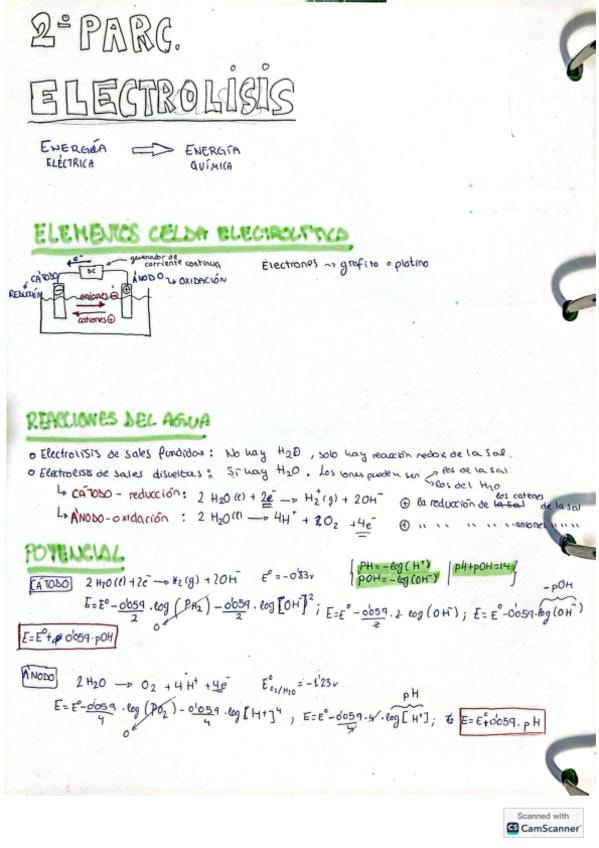 2º PARC.
ELECTROLISIS
ENERGÍA ELÉCTRICA ⟹ ENERGÍA QUÍMICA
ELEMENTOS CELDA ELECTROLÍTICA
generador de corriente continua
e⁻
DC
CÁTODO
REDUCCIÓN
ÁNODO ↳ OXIDACIÓN
aniones ⊖
cationes ⊕
Electrones ⇝ grafito o platino
REACCIONES DEL AGUA
o Electrolisis de sales fundidas: No hay H₂O, solo hay reacción redox de la sal.
o Electrolisis de sales disueltas: Si hay H₂O. Los iones pueden ser los de la sal
los del H₂O
↳ CÁTODO - reducción: 2 H₂O(l) + 2e⁻ → H₂(g) + 2OH⁻ ⊕ la reducción de los cationes de la sal
↳ ÁNODO - oxidación: 2 H₂O(l) → 4H⁺ + O₂ + 4e⁻ ⊕ " " " " aniones " " "
POTENCIAL
PH = -log(H⁺)
POH = -log(OH⁻)
pH + pOH = 14
CÁTODO 2H₂O(l) + 2e⁻ → H₂(g) + 2OH⁻ E° = -0'83v
E = E° - 0'059/2 · log(PH₂) - 0'059/2 · log[OH⁻]²; E = E° - 0'059/2 · 2 log(OH⁻); E = E° - 0'059 · log(OH⁻)
0
-pOH
E = E° + 0'059 · pOH
ÁNODO 2H₂O → O₂ + 4H⁺ + 4e⁻ E° O₂/H₂O = -1'23v
E = E° - 0'059/4 · log(PO₂) - 0'059/4 · log[H⁺]⁴; E = E° - 0'059/4 · 4 · log[H⁺]; E = E° + 0'059 · pH
0
pH
Scanned with
CS CamScanner